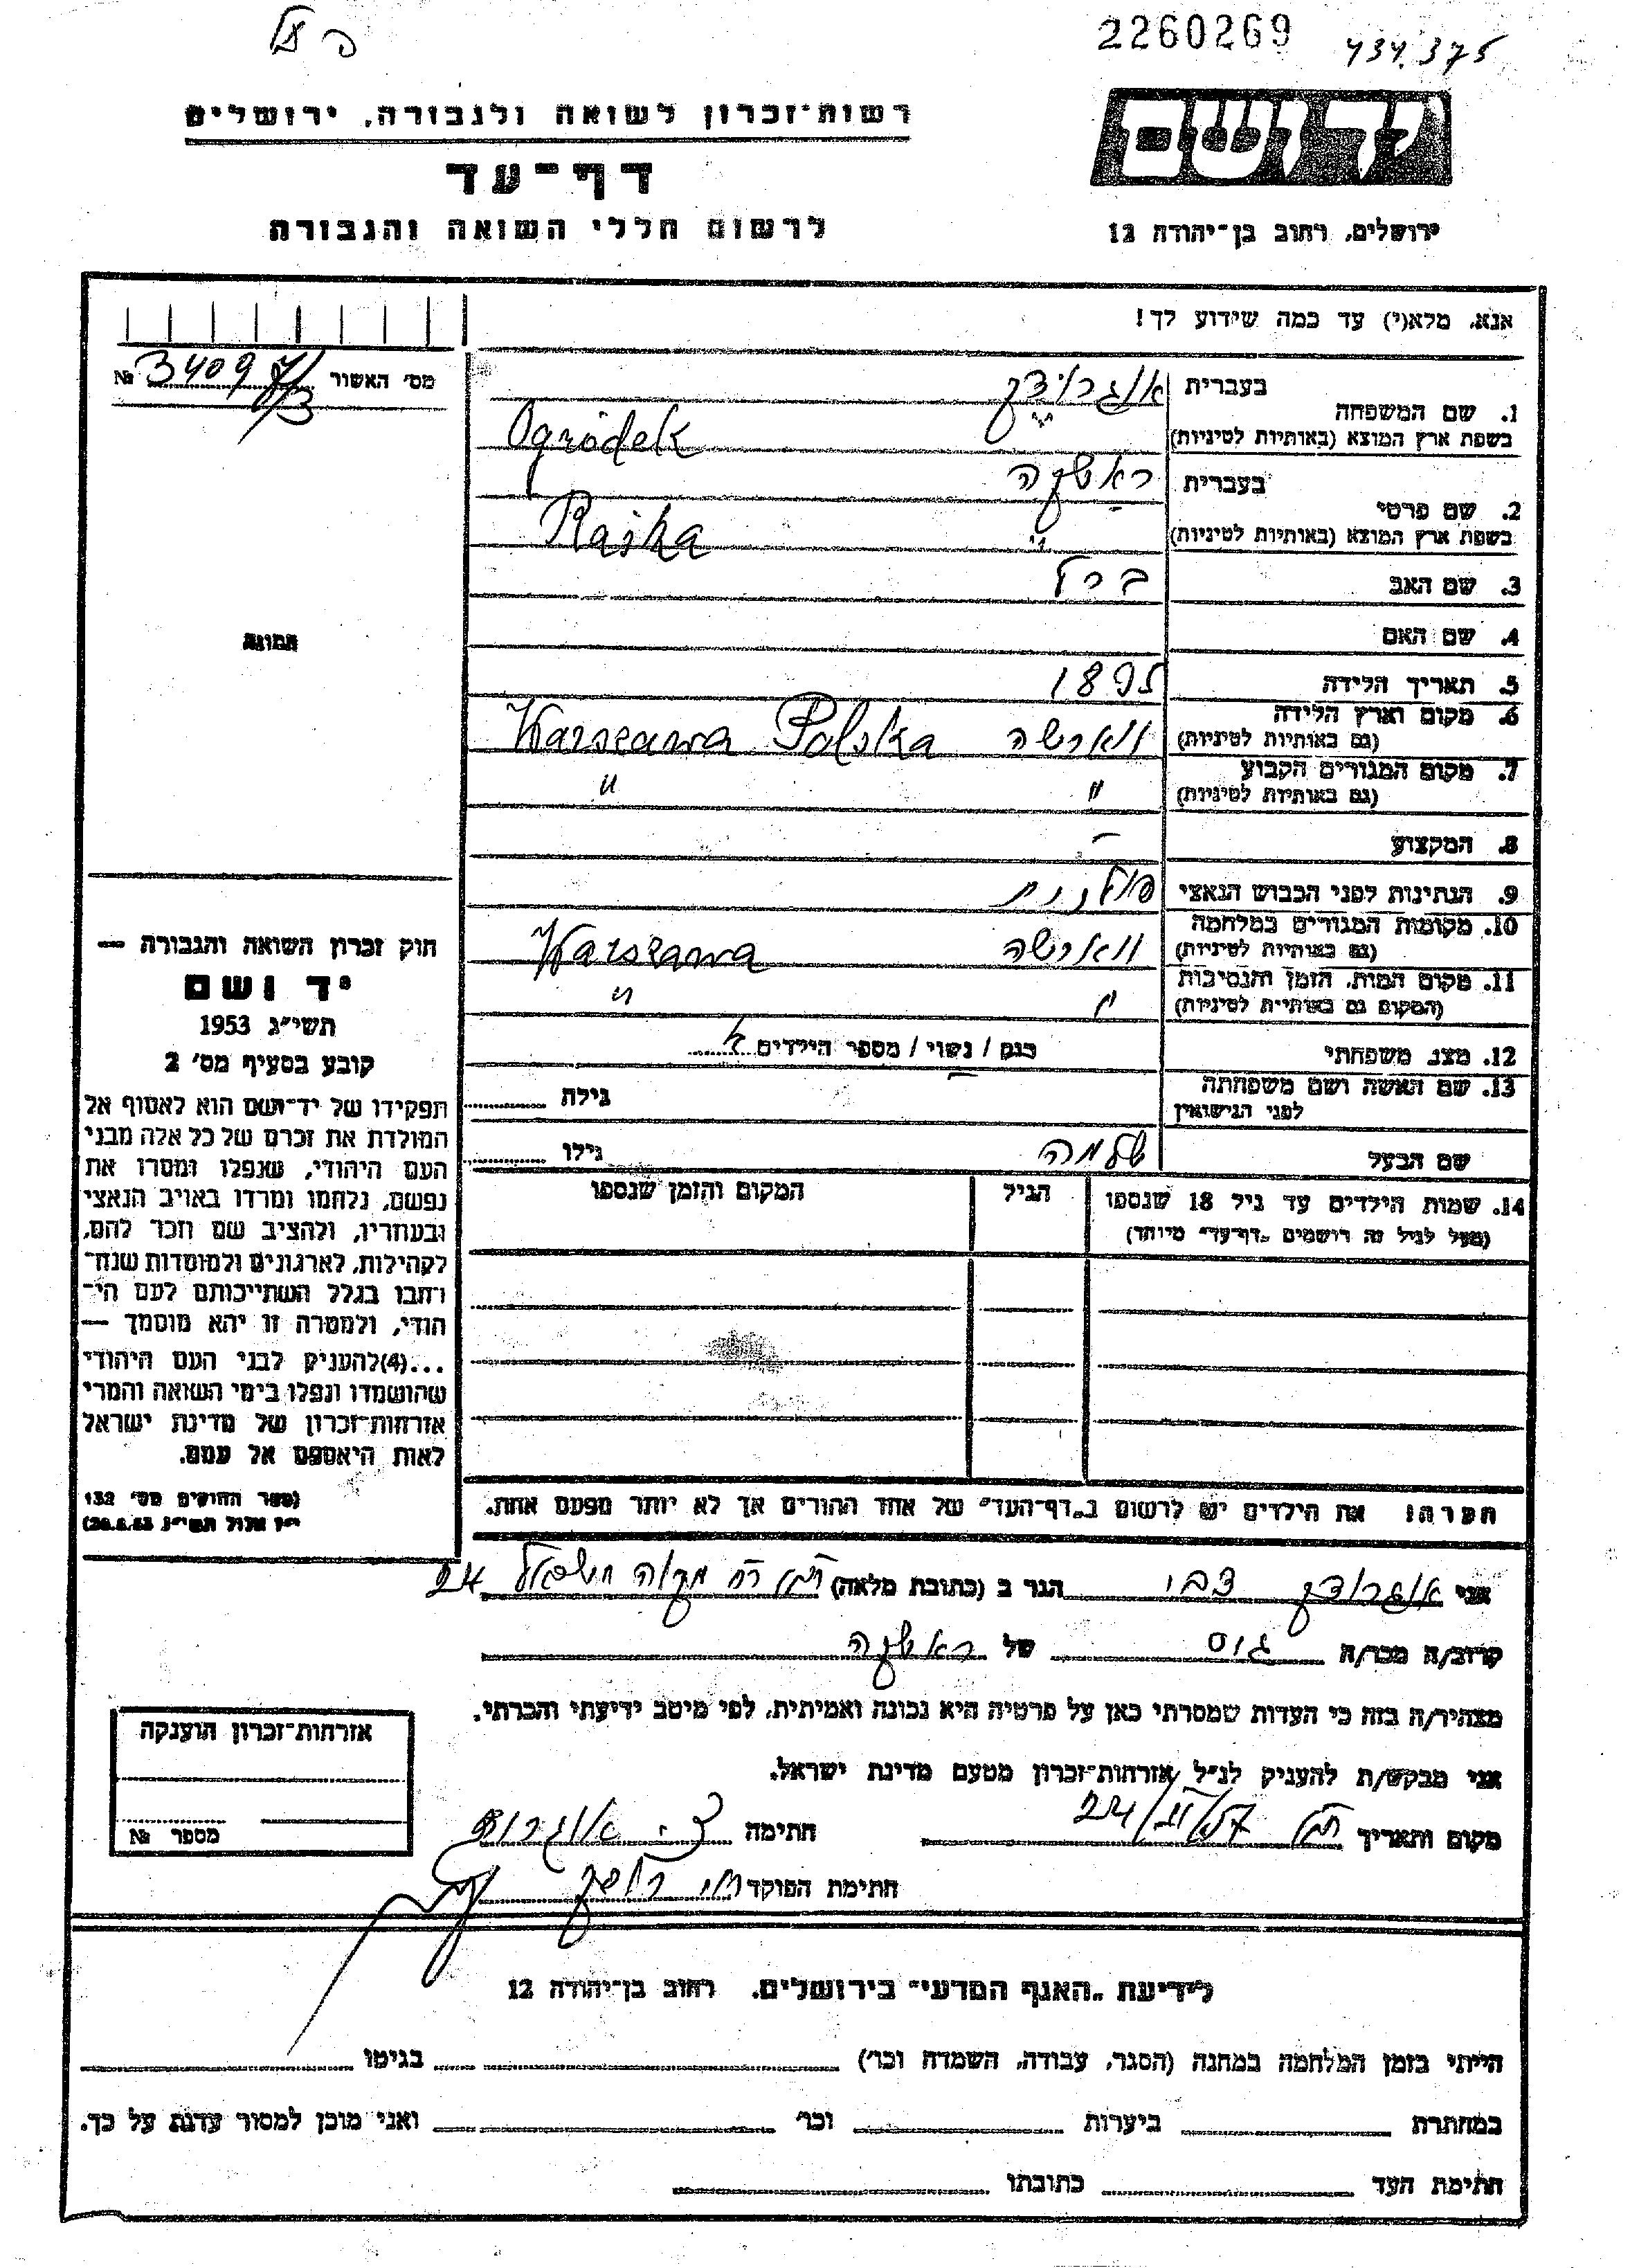 2260269 434.375
יד ושם
ירושלים, רחוב בן־יהודה 12
רשות־זכרון לשואה ולגבורה, ירושלים
דף־עד
לרשום חללי השואה והגבורה
אנא, מלא(י) עד כמה שידוע לך!
מס' האשור 3409 №
1. שם המשפחה
בעברית אוגרודק
בשפת ארץ המוצא (באותיות לטיניות) Ogródek
2. שם פרטי
בעברית ראשקה
בשפת ארץ המוצא (באותיות לטיניות) Raśka
3. שם האב ברל
4. שם האם
5. תאריך הלידה 1895
6. מקום וארץ הלידה
(גם באותיות לטיניות) ווארשה Warszawa Polska
7. מקום המגורים הקבוע
(גם באותיות לטיניות) " "
8. המקצוע –
9. הנתינות לפני הכבוש הנאצי פולנית
10. מקומות המגורים במלחמה
(גם באותיות לטיניות) ווארשה Warszawa
11. מקום המות, הזמן והנסיבות
(המקום גם באותיות לטיניות) " "
12. מצב משפחתי רגם / נשוי / מספר הילדים
13. שם האשה ושם משפחתה
לפני הנישואין – גילה
שם הבעל שלמה גילו
14. שמות הילדים עד גיל 18 שנספו
(מעל לגיל זה רושמים "דף־עד" מיוחד)
הגיל
המקום והזמן שנספו
הערה! את הילדים יש לרשום ב"דף־העד" של אחד ההורים אך לא יותר מפעם אחת.
התמונה
חוק זכרון השואה והגבורה —
יד ושם
תשי"ג 1953
קובע בסעיף מס' 2
תפקידו של יד־ושם הוא לאסוף אל
המולדת את זכרם של כל אלה מבני
העם היהודי, שנפלו ומסרו את
נפשם, נלחמו ומרדו באויב הנאצי
ובעוזריו, ולהציב שם וזכר להם,
לקהילות, לארגונים ולמוסדות שנח־
רבו בגלל השתייכותם לעם הי־
הודי, ולמטרה זו יהא מוסמך —
...(4)להעניק לבני העם היהודי
שהושמדו ונפלו בימי השואה והמרי
אזרחות־זכרון של מדינת ישראל
לאות היאספם אל עמם.
(ספר החוקים מס' 132
י"ז אלול תשי"ג 28.8.53)
אני אוגרודק צבי הגר ב (כתובת מלאה) רח מקוה ישראל 24
קרוב/ה מכר/ה גיס של ראשקה
מצהיר/ה בזה כי העדות שמסרתי כאן על פרטיה היא נכונה ואמיתית, לפי מיטב ידיעתי והכרתי.
אני מבקש/ת להעניק לנ"ל אזרחות־זכרון מטעם מדינת ישראל.
מקום ותאריך חתימה צבי אוגרודק
חתימת הפוקד
אזרחות־זכרון הוענקה
מספר №
לידיעת "האגף המדעי" בירושלים, רחוב בן־יהודה 12
הייתי בזמן המלחמה במחנה (הסגר, עבודה, השמדה וכו') בגיטו
במחתרת ביערות וכו' ואני מוכן למסור עדות על כך.
חתימת העד כתובתו